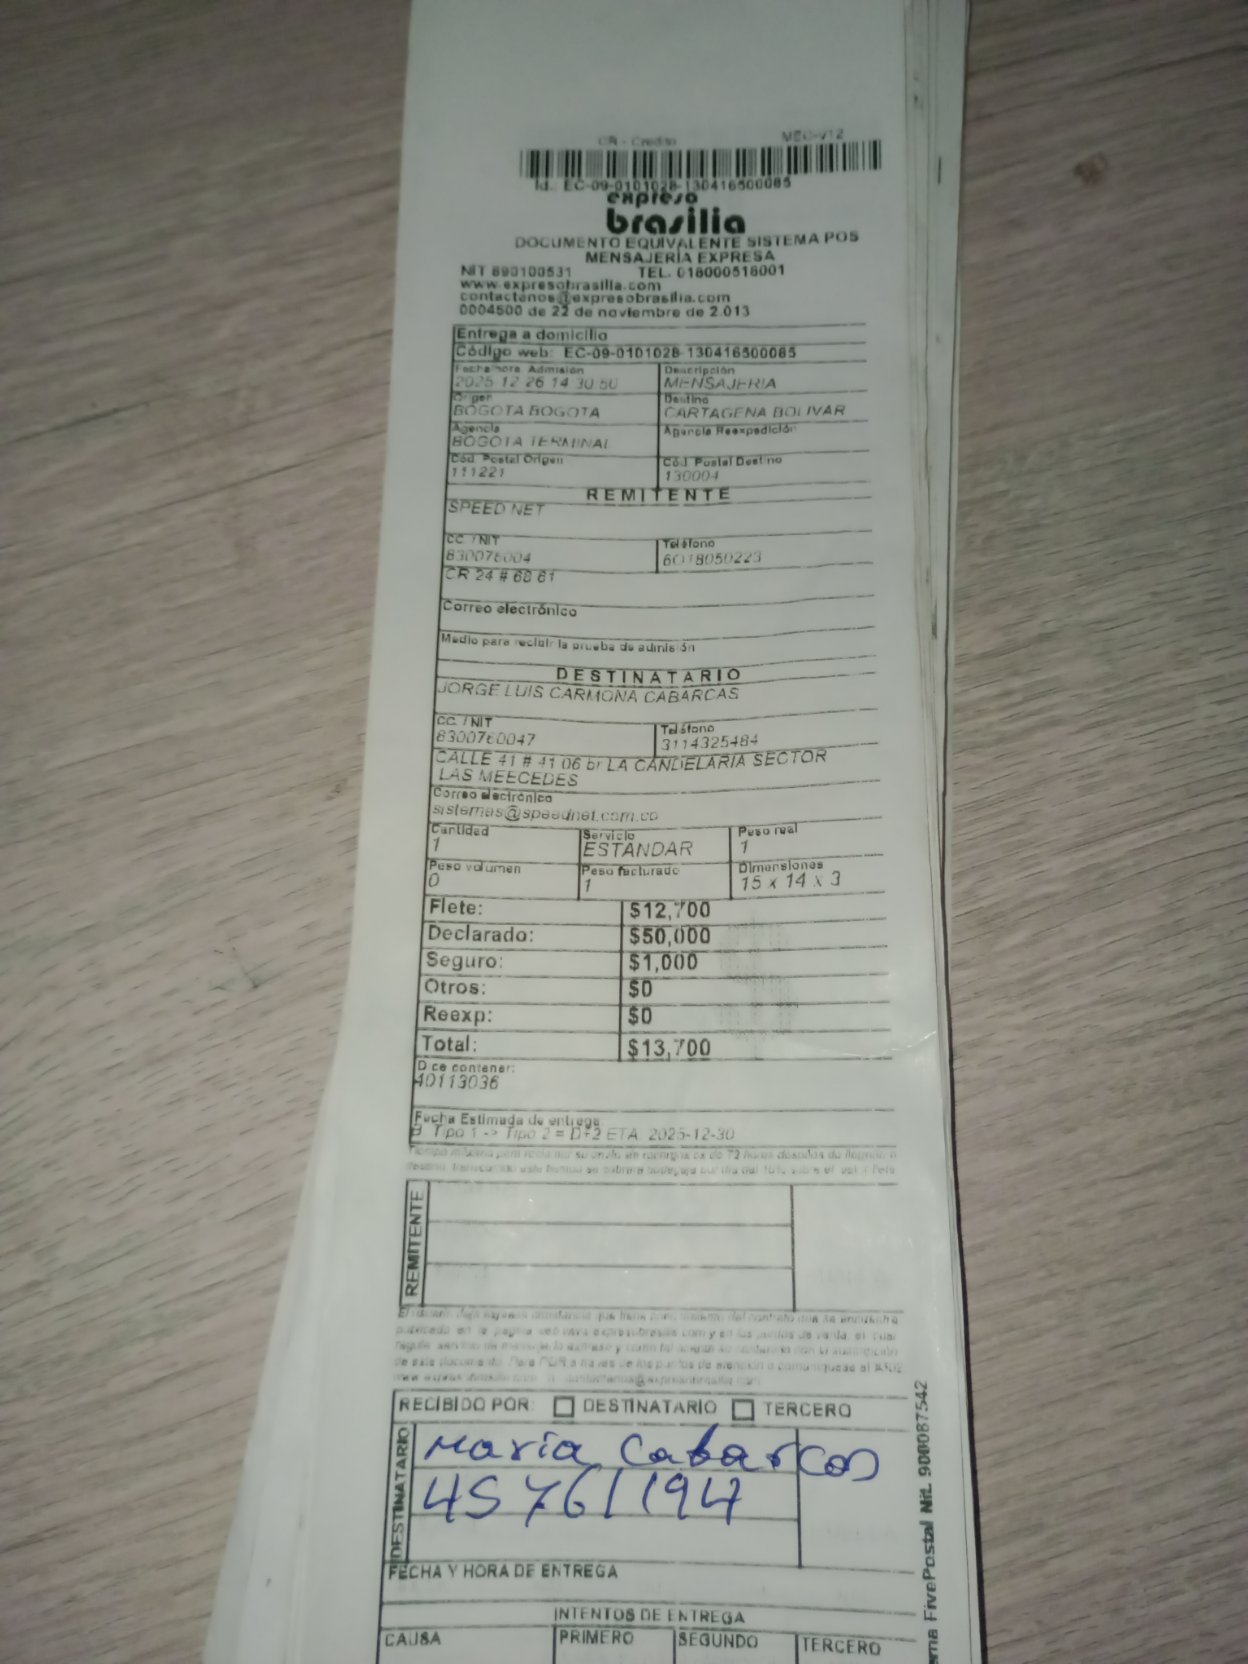 CR - Crédito MEC-V12
Id.: EC-09-0101028-130416500085
expreso
brasilia
DOCUMENTO EQUIVALENTE SISTEMA POS
MENSAJERÍA EXPRESA
NIT 890100531 TEL. 018000518001
www.expresobrasilia.com
contactenos@expresobrasilia.com
0004500 de 22 de noviembre de 2.013
Entrega a domicilio
Código web: EC-09-0101028-130416500085
Fecha hora Admisión Descripción
2025 12 26 14 30 50 MENSAJERIA
Origen Destino
BOGOTA BOGOTA CARTAGENA BOLIVAR
Agencia Agencia Reexpedición
BOGOTA TERMINAL
Cód. Postal Origen Cód. Postal Destino
111221 130004
REMITENTE
SPEED NET
CC. / NIT Teléfono
830076004 6018050223
CR 24 # 60 61
Correo electrónico
Medio para recibir la prueba de admisión
DESTINATARIO
JORGE LUIS CARMONA CABARCAS
CC. / NIT Teléfono
8300760047 3114325484
CALLE 41 # 41 06 br LA CANDELARIA SECTOR
LAS MEECEDES
Correo electrónico
sistemas@speednet.com.co
Cantidad Servicio Peso real
1 ESTANDAR 1
Peso volumen Peso facturado Dimensiones
0 1 15 x 14 x 3
Flete: $12,700
Declarado: $50,000
Seguro: $1,000
Otros: $0
Reexp: $0
Total: $13,700
Dice contener:
40113036
Fecha Estimada de entrega
Tipo 1 -> Tipo 2 = D+2 ETA: 2025-12-30
REMITENTE
RECIBIDO POR: DESTINATARIO TERCERO
DESTINATARIO
Maria Cabarcas
45761194
FECHA Y HORA DE ENTREGA
INTENTOS DE ENTREGA
CAUSA PRIMERO SEGUNDO TERCERO
FivePostal Nit. 900087542